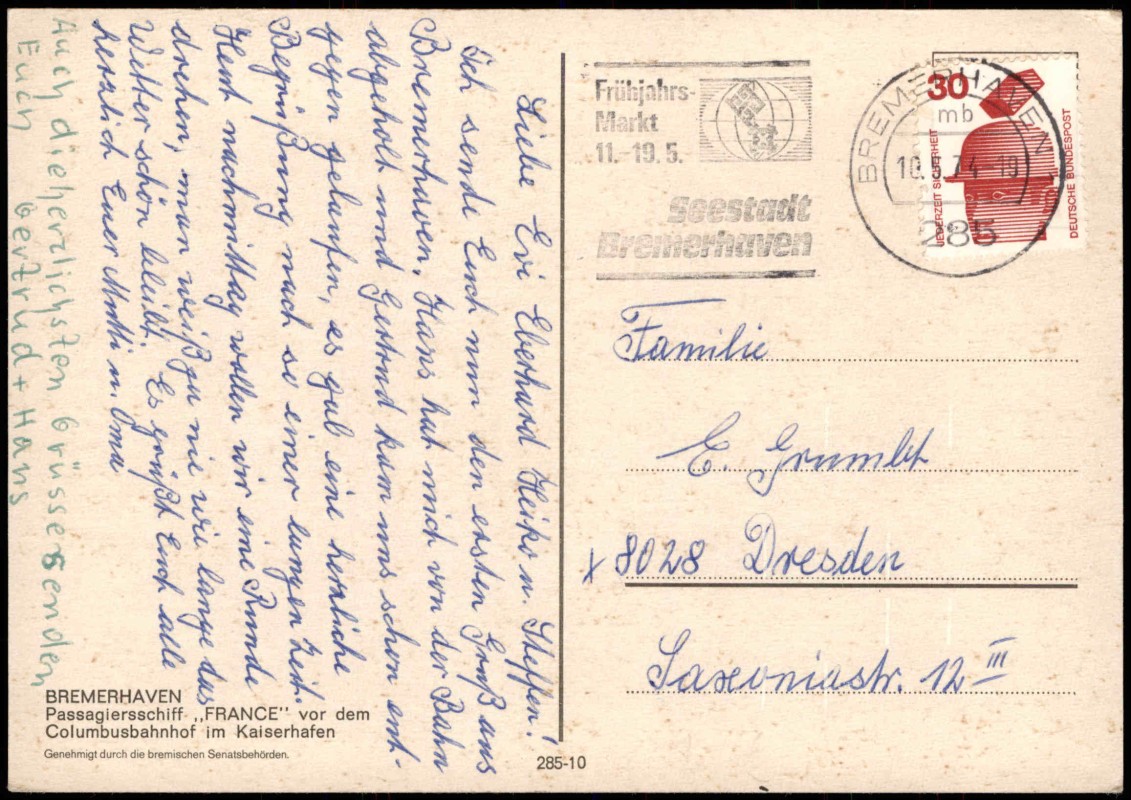 Liebe Evi Eberhard Heiko u. Steffen!
Ich sende Euch nun den ersten Gruß aus
Bremerhaven, Hans hat mich von der Bahn
abgeholt und Gertrud kam uns schon ent-
gegen gelaufen, es gab eine herrliche
Begrüßung nach so einer langen Zeit.
Heut nachmittag wollen wir eine Runde
drehen, man weiß ja nie wie lange das
Wetter schön bleibt. Es grüßt Euch alle
herzlich Euer Mutti u. Oma
Auch die herzlichsten Grüsse senden
Euch Gertrud + Hans
BREMERHAVEN
Passagiersschiff „FRANCE" vor dem
Columbusbahnhof im Kaiserhafen
Genehmigt durch die bremischen Senatsbehörden.
285-10
Frühjahrs-
Markt
11.-19.5.
Seestadt
Bremerhaven
BREMERHAVEN 1
mb
10.5.74-19
285
30
JEDERZEIT SICHERHEIT
DEUTSCHE BUNDESPOST
Familie
E. Grumbt
x 8028 Dresden
Saxoniastr. 12 III